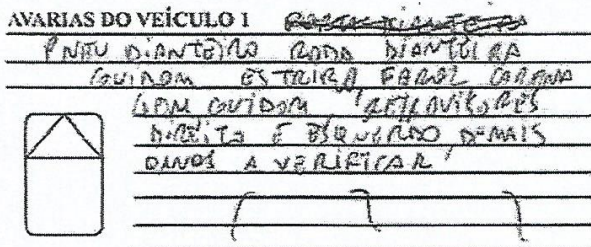 AVARIAS DO VEÍCULO 1
PNEU DIANTEIRO RODA DIANTEIRA
GUIDOM ESTRIBA FAROL CARENA
GUIDOM RETROVISORES
DIREITO E ESQUERDO DEMAIS
DANOS A VERIFICAR